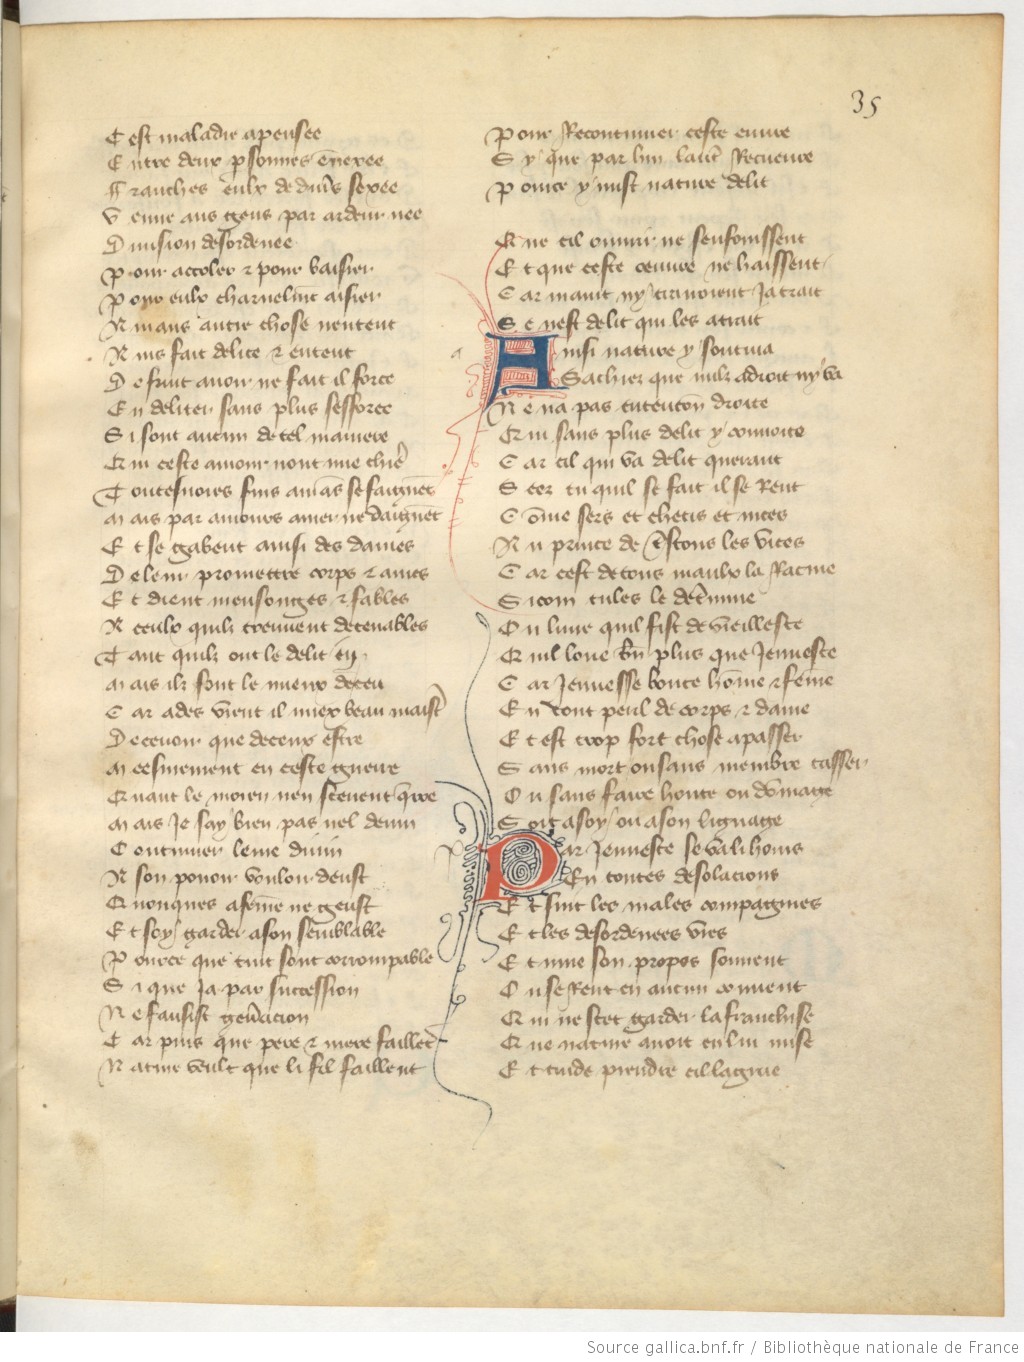 35
C est maladie apensee
E ntre deux psonnes ēnexee
F ranches eulx de diuˀs sexee
V enue aus gens par ardeur nee
D iuision desordenee
P our accoler ⁊ pour baisier
P our eulx charnelmēt aisier
A mans autre chose nentent
A ins fait delite ⁊ entent
D e fruit auoir ne fait il force
E n deliter sans plus sefforce
S i sont aucun de tel maniere
Q ui ceste amour nont mie chiēr
T outesuoies fins amās se faignēt
M ais par amours amer ne daignēt
E t se gabent ainsi des dames
D e leur promettre corps ⁊ ames
E t dient mensonges ⁊ fables
A ceulx quilz treuuent decenables
T ant quilz ont le delit eu
M ais ilz sont le mieux deceu
C ar ades vient il miex beau maistˀ
D eceuoir que deceux estre
M eesmement en ceste guerre
Q uant le moien nen sceuent q̄rre
M ais Je say bien pas nel deuin
C ontinuer lerme diuin
A son pouoir vouloir deust
Q uonques a fēme ne geust
E t soy garder a son semblable
P ource que tuit sont corrompable
S i que Ja par succession
N e fausist genˀacion
C ar puis que pere ⁊ mere faillēt
N ature veult que li fil faillent
P our Recontinuer ceste euure
S y que par lun lautˀ Recueure
P ource y mist nature delit
Q ue cil ouurier ne senfouissent
E t que ceste oeuure ne haissent
C ar maint ny trairoient Ja trait
S e nest delit qui les atrait
A insi nature y soutiua
Sachiez que nulz adroit ny va
N e na pas entencōn droite
Q ui sans plus delit y conuoite
C ar cil qui va delit querant
S cez tu quil se fait il se Rent
C ōme sers et chetis et nices
A u prince de tˀstous les vices
C ar cest de tous maulx la Racine
S icom tules le detˀmine
O u liure quil fist de vieilleste
Q uil loue bn̄ plus que Jenneste
C ar Jennesse boute hōme ⁊ fēme
E n tout peril de corps ⁊ dame
E t est trop fort chose a passer
S ans mort ou sans membre casser
O u sans faire honte ou dōmage
S oit a soy ou a son lignage
P ar Jenneste se va li homs
En toutes desolacions
E t suit les males compagnies
E t les desordenees vies
E t mue son propos souuent
O u se Rent en aucun couuent
Q ui ne scet garder la franchise
Q ue nature auoit en lui mise
E t cuide prendre cil la grue
Source gallica.bnf.fr / Bibliothèque nationale de France